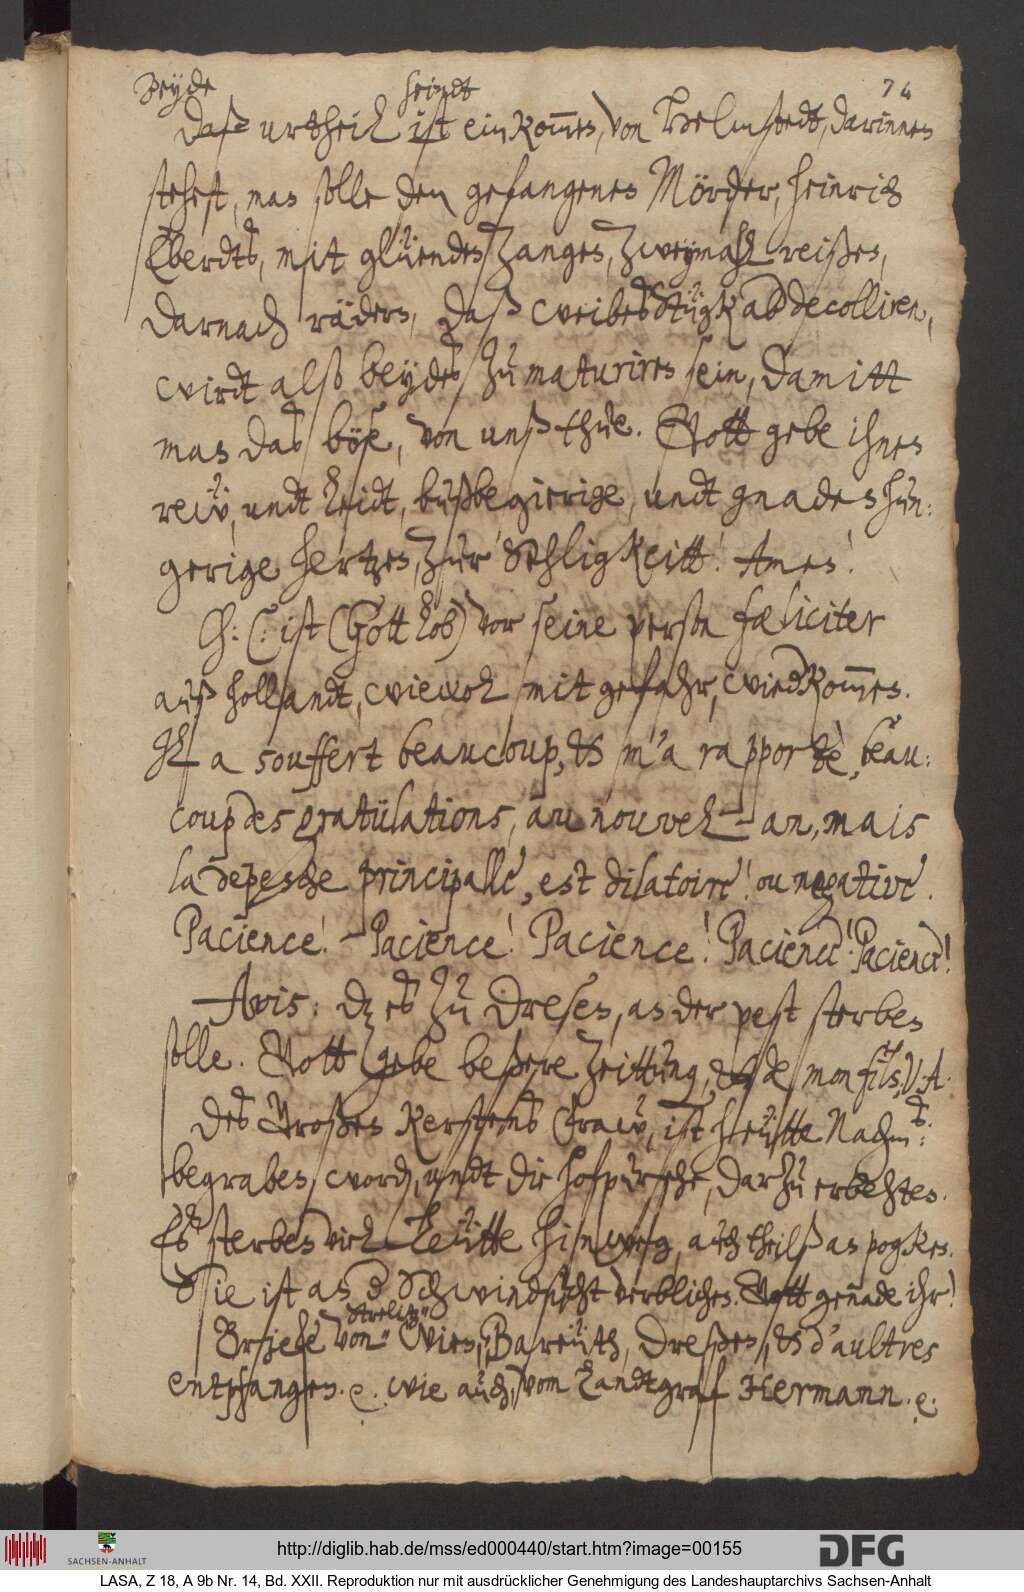 74
Beyde seindt
Daß urtheil ist einkom̅en, von Helmstedt, darinnen
stehet, man solle den gefangenen Mörder, heinrich
Eberdts, mit glüenden Zangen, Zweymahl reißen,
darnach rädern, daß weibesstügk ab decolliren,
wirdt also beydes zu maturiren sein, damitt
man das böse, von unß thue. Gott gebe ihnen
reiv, undt leidt, bußbegierige, undt gnadenhun:
gerige hertzen, zur Sehligkeitt! Amen!
Ch: C: ist (Gott lob) vor seine person fœliciter
auß hollandt, wiewol mit gefahr, wiedkom̅en.
Il a souffert beaucoup, & m'a rapportè, beau:
coup des gratülations, au nouvel-an, mais
la depesche principalle, est dilatoire! ou negative.
Pacience! Pacience! Pacience! Pacience! Pacience!
Avis: dz es zu Dresen, an der pest sterben
solle. Gott gebe beßere Zeittung, & de mon fils, V. A.
Des Großen Kerstens Fraw, ist heütte Nachmts:
begraben, word, undt die hofpursche, darzu erbehten.
Es sterben viel Leütte hinweg, auch theilß an pogken.
Sie ist an d Schwindsucht verblichen. Gott genade ihr!
Strelitz"
Briefe von" Wien, Bareüth, Dreßen, & d'aultres
entpfangen. e. wie auch, vom Landtgraf Hermann. e.
SACHSEN-ANHALT
http://diglib.hab.de/mss/ed000440/start.htm?image=00155
DFG
LASA, Z 18, A 9b Nr. 14, Bd. XXII. Reproduktion nur mit ausdrücklicher Genehmigung des Landeshauptarchivs Sachsen-Anhalt